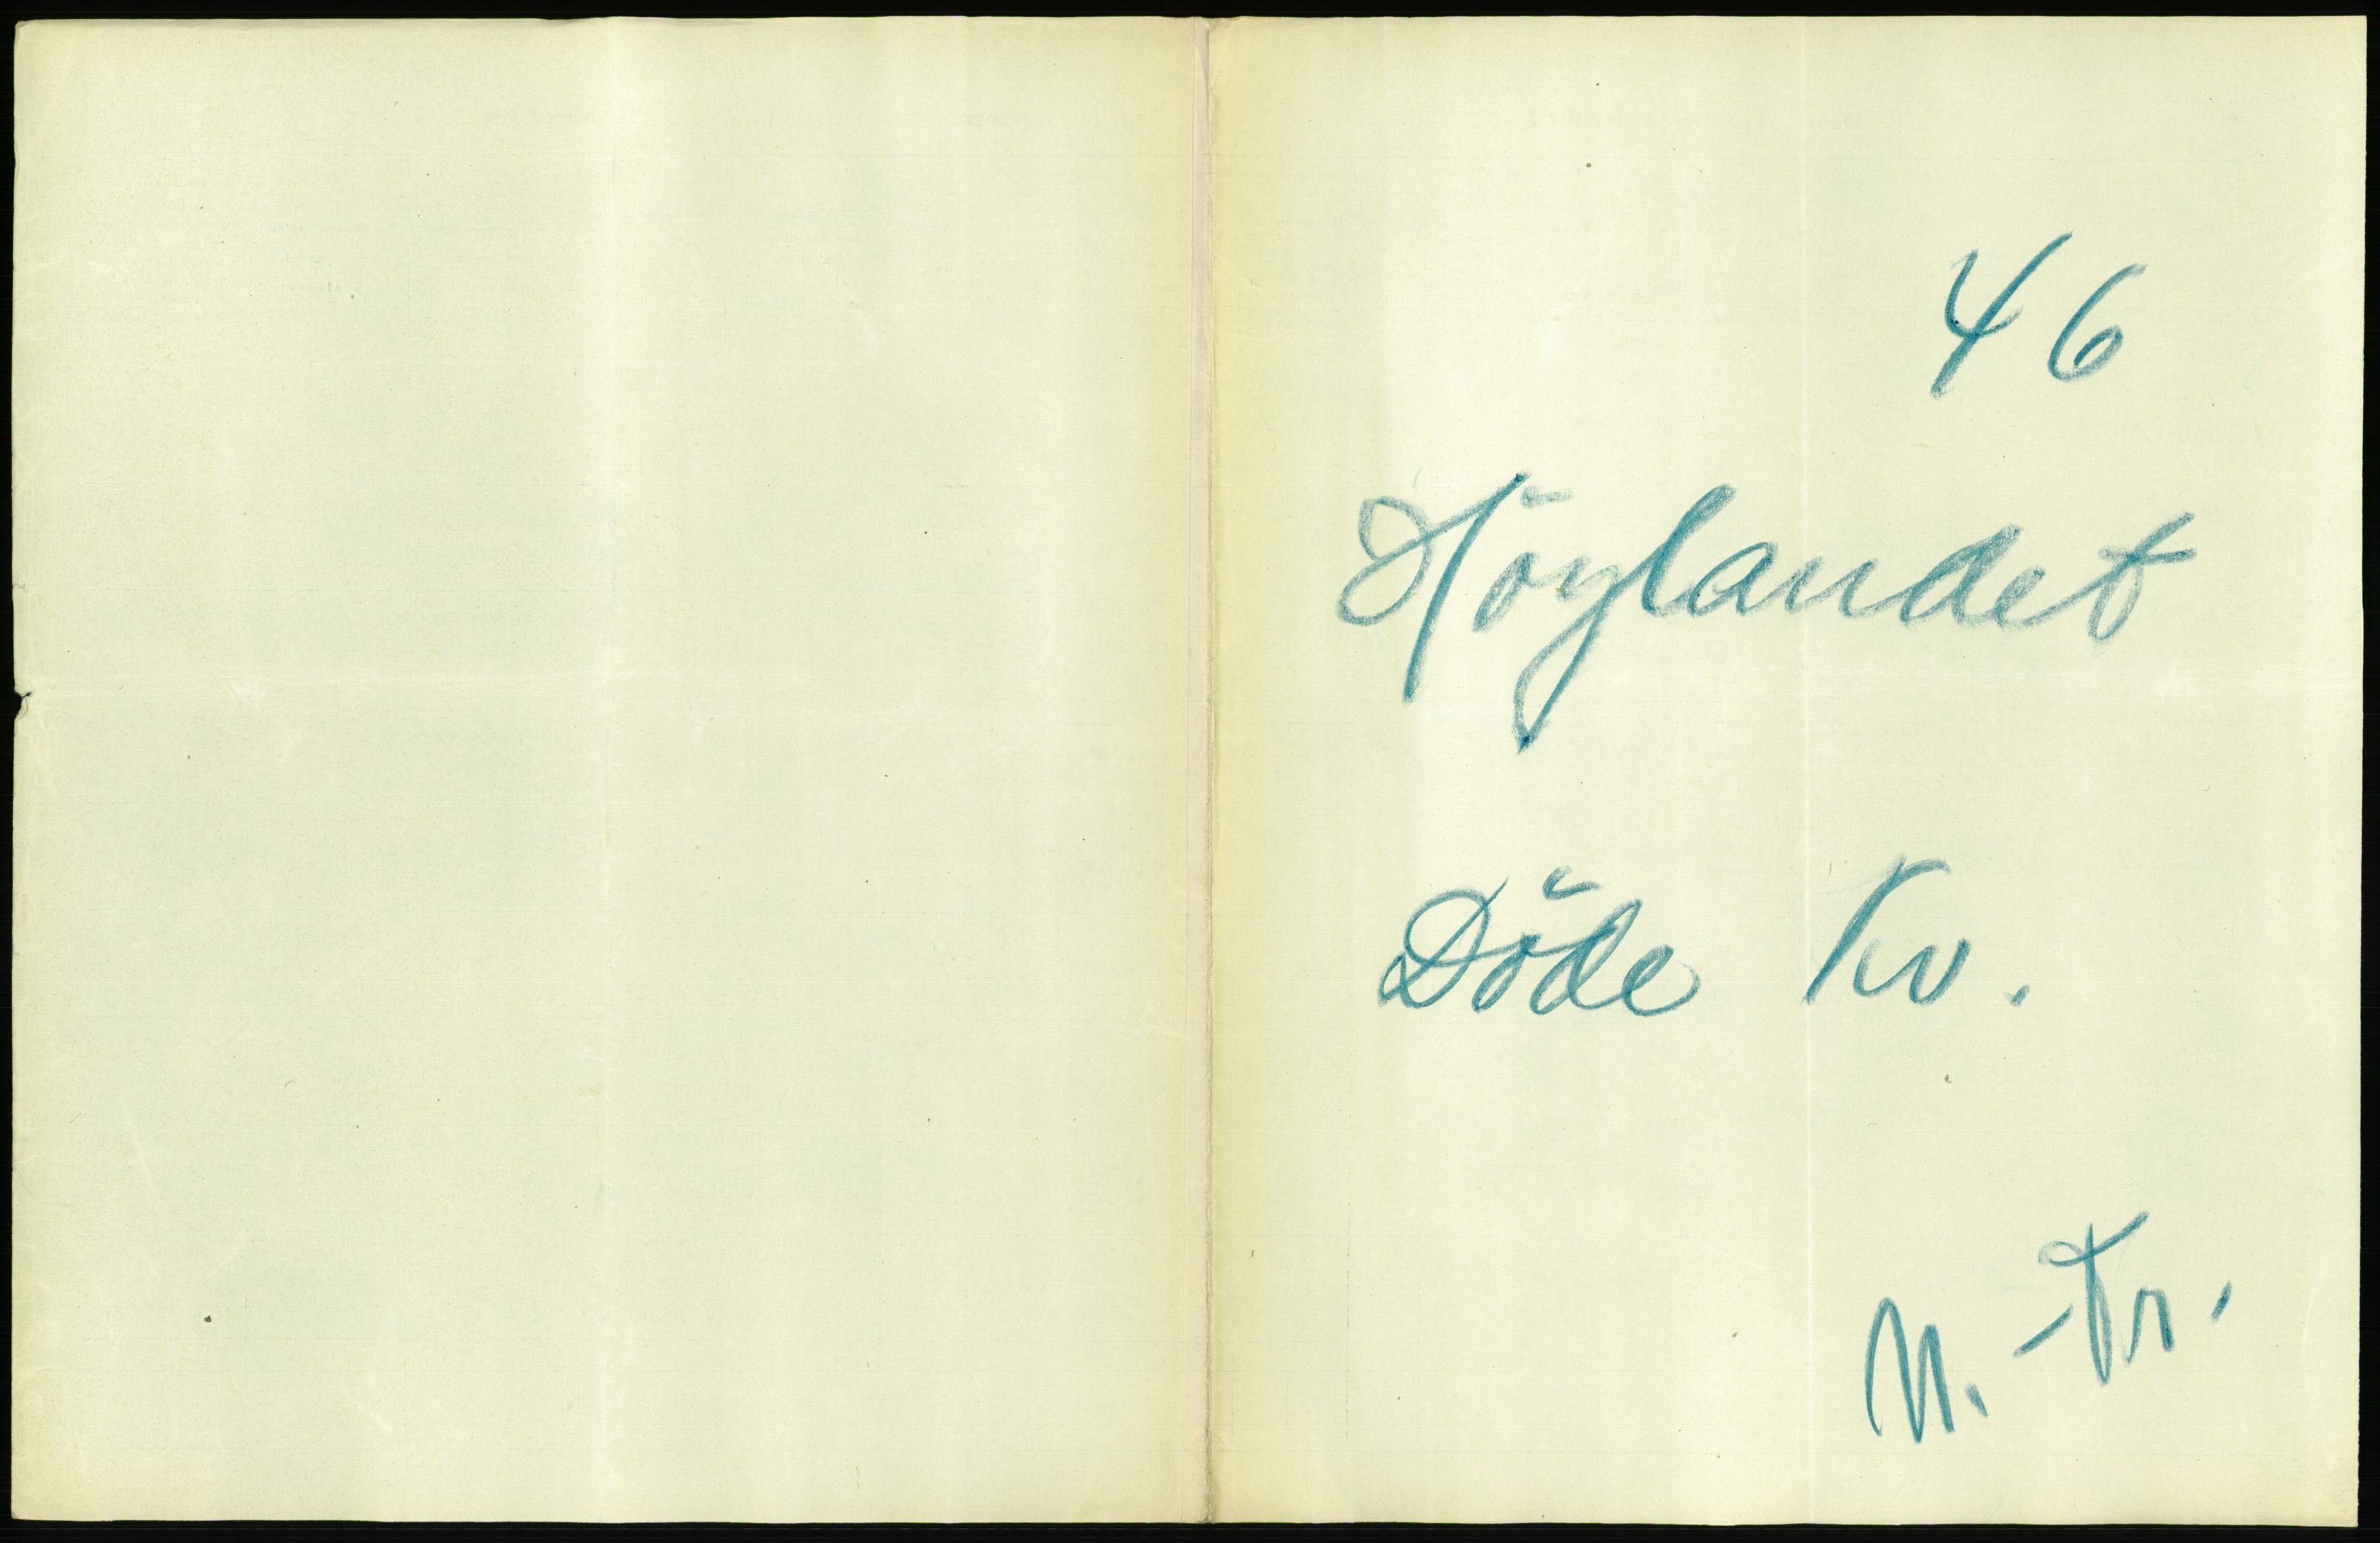 46
Höylandet
Döde Kv.
N.-Tr.